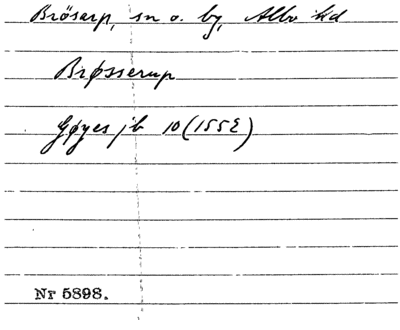 Brösarp, sn o. by, Albo hd
Brøsserup
Gøyes jb 10 (1552)
Nr 5898.